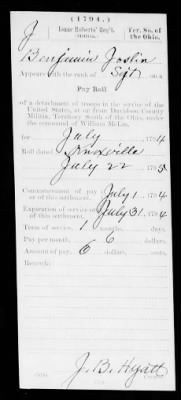 (1794.)
J Isaac Roberts' Reg't. Ter. So. of
the Ohio.
Benjamin Joslin
Appears with the rank of Sgt. on a
Pay Roll
of a detachment of troops in the service of the
United States, at or from Davidson County
Militia, Territory South of the Ohio, under
the command of William McLin,
for July , 1794
Roll dated Knoxville
July 22 1795
Commencement of pay or of this settlement, July 1, 1794
Expiration of service or of this settlement, July 31, 1794
Term of service, 1 months, days.
Pay per month, 6 dollars.
Amount of pay, 6 dollars, cents.
Remark:
J. B. Hyatt